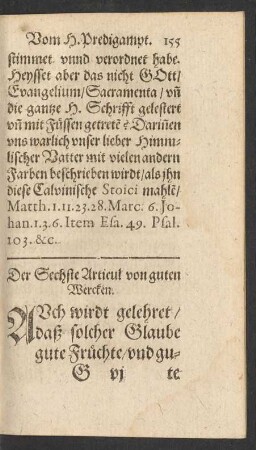 Vom H. Predigampt. 155
stimmet vnnd verordnet habe.
Heysset aber das nicht GOtt/
Evangelium/Sacramenta/vñ
die gantze H. Schrifft gelestert
vñ mit Füssen getretē? Dariñen
vns warlich vnser lieber Himm-
lischer Vatter mit vielen andern
Farben beschrieben wirdt/als jhn
diese Calvinische Stoici mahlē/
Matth. 1. 11. 23. 28. Marc. 6. Jo-
han. 1. 3. 6. Item Esa. 49. Psal.
103. &c.
Der Sechste Articul von guten
Wercken.
AVch wirdt gelehret/
daß solcher Glaube
gute Früchte/vnd gu-
G vj te